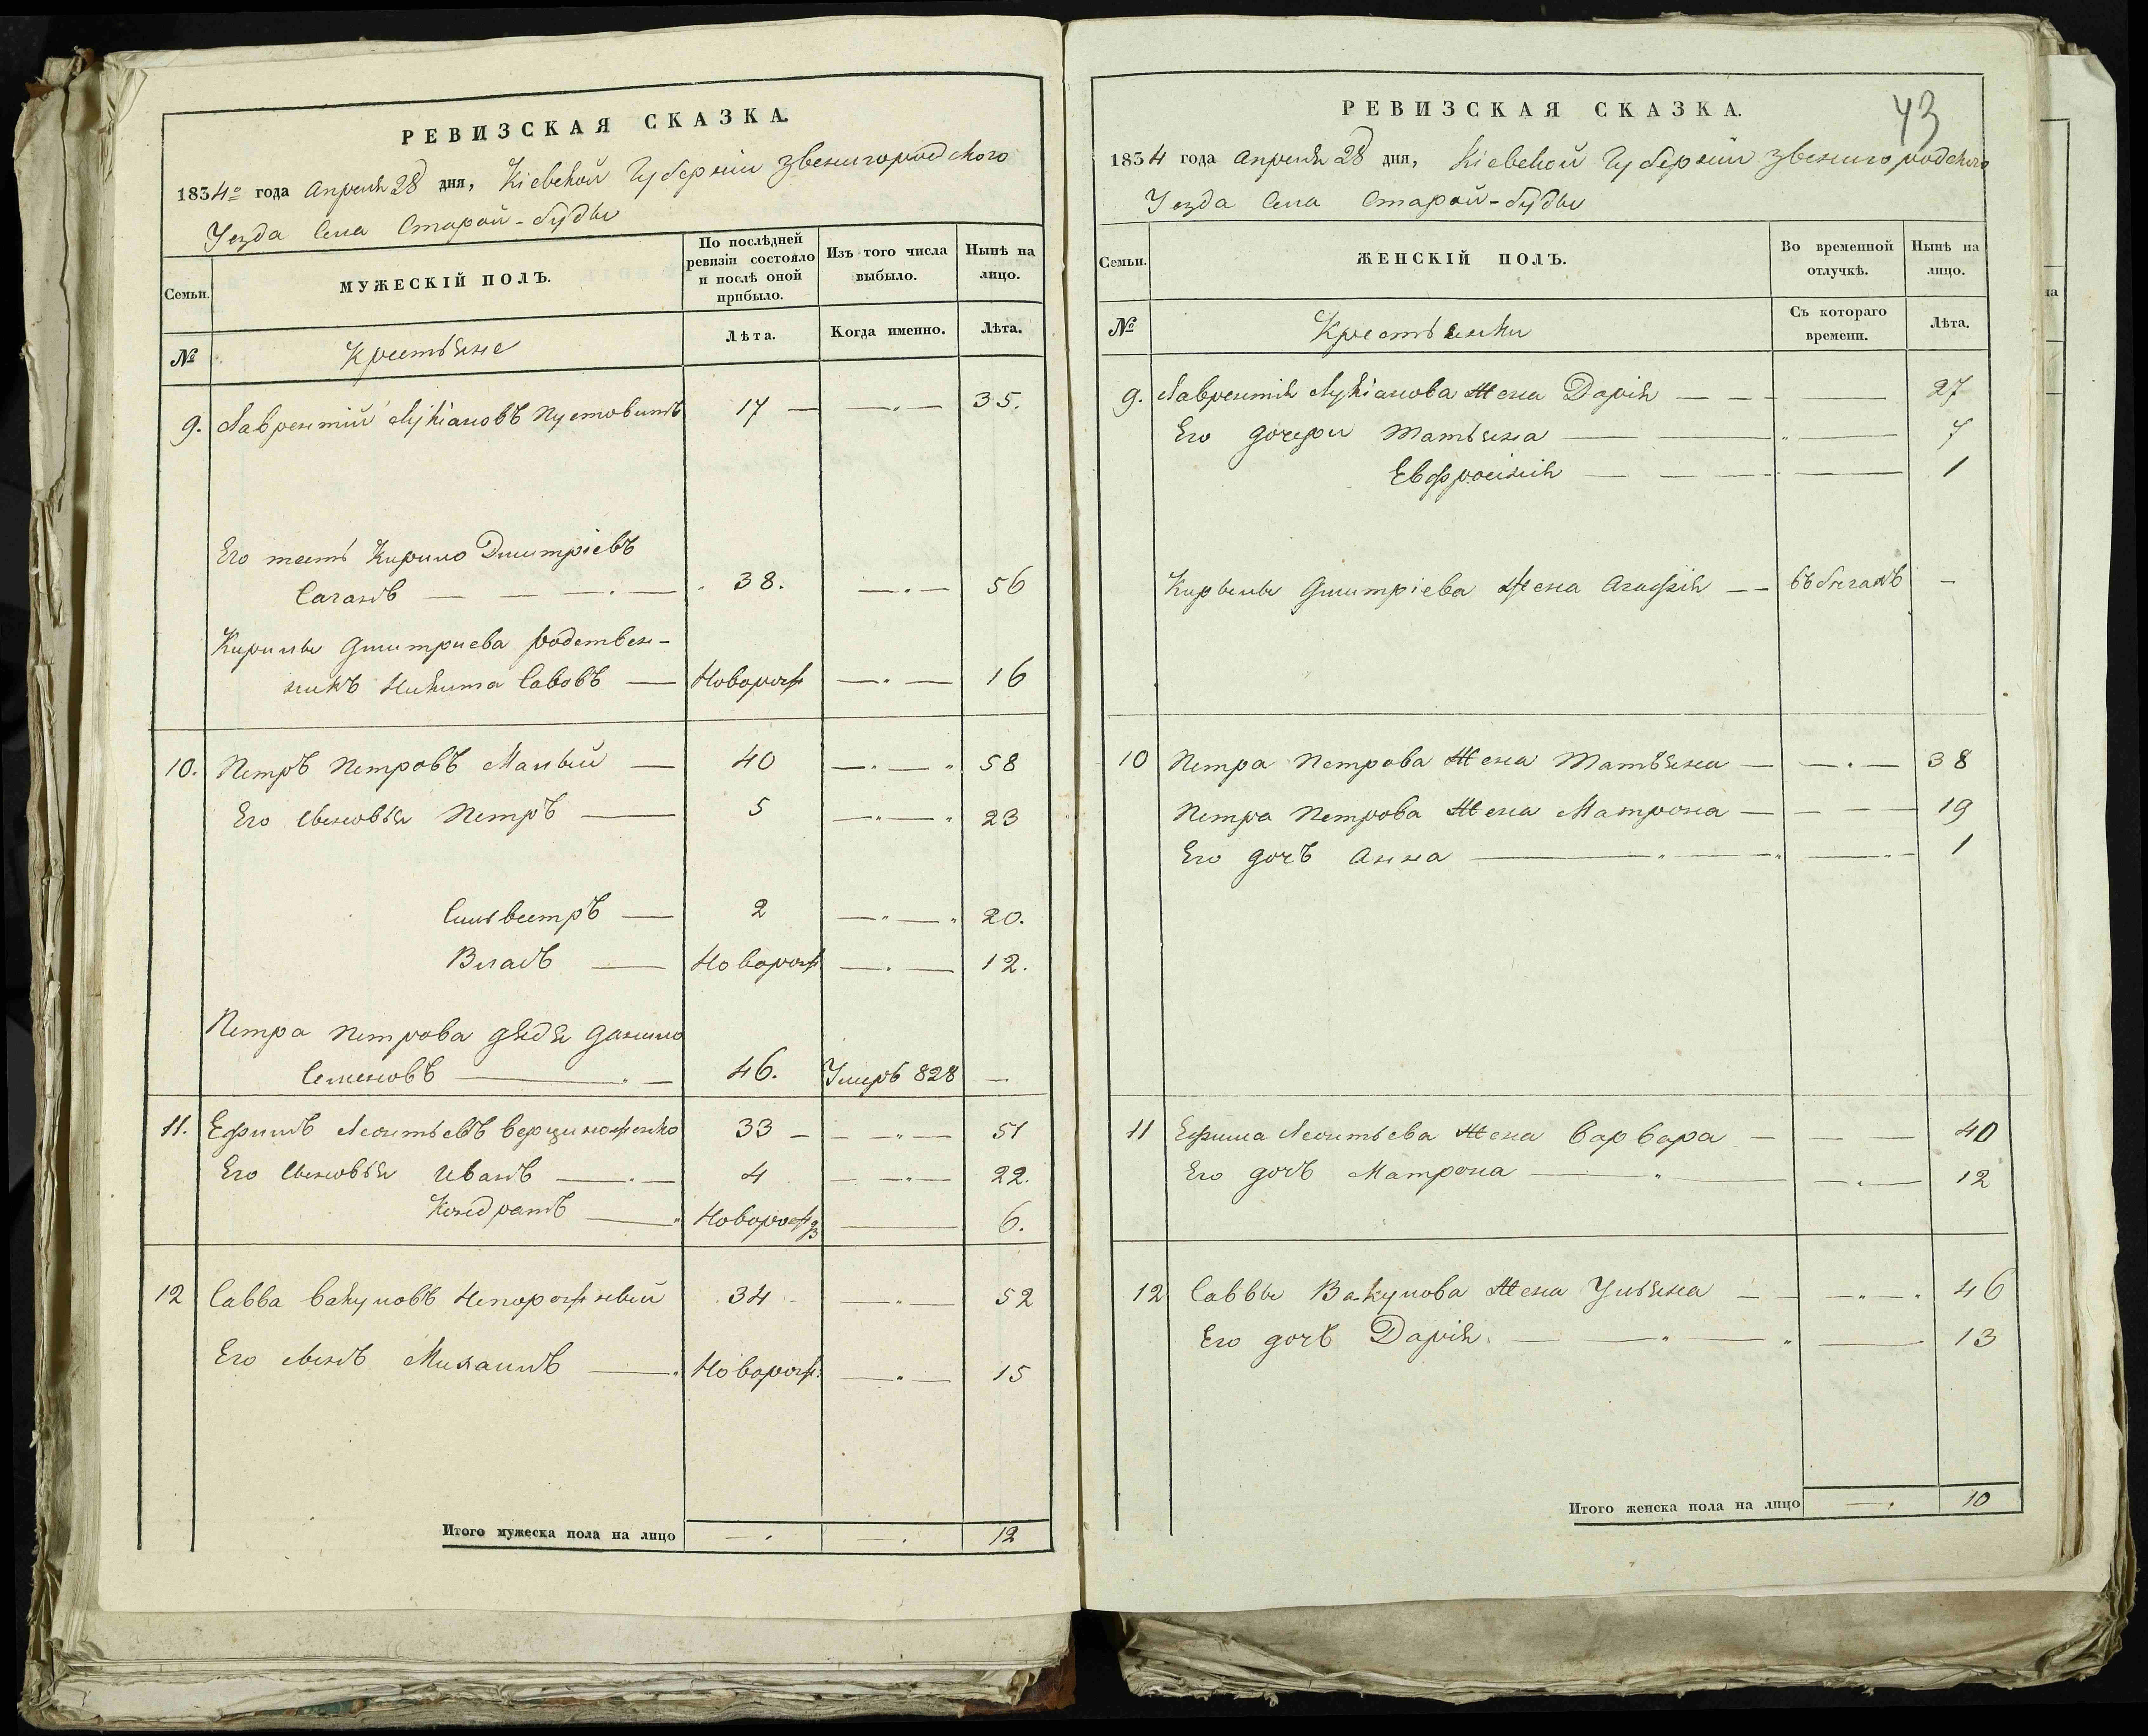 РЕВИЗСКАЯ СКАЗКА.
1834го года Апреля 28 дня, Кіевской Губерніи Звенигородского
Уезда Села Старой-Буды
Семьи.
МУЖЕСКІЙ ПОЛЪ.
По послѣдней
ревизіи состояло
и послѣ оной
прибыло.
Изъ того числа
выбыло.
Нынѣ на
лицо.
№
Крестьяне
Лѣта.
Когда именно.
Лѣта.
9. Лаврентій Лукіановъ Пустовитъ 17 — —"— 35.
Его тесть Кирило Дмитріевъ
Саганъ — — —"— 38. —"— 56
Кирилы Дмитриева родствен-
никъ Никита Савовъ — Новорож —"— 16
10. Петръ Петровъ Малый — 40 —"—" 58
Его сыновья Петръ — 5 —"—" 23
Сильвестръ — 2 —"—" 20.
Власъ — Новорож —"— 12.
Петра Петрова дядя Данило
Семеновъ —"— 46. Умеръ 828 —
11. Ефимъ Леонтьевъ 33 — — —"— 51
Его сыновья Иванъ —"— 4 — —"— 22.
Кондратъ —" Новорожд — 6.
12 Савва Вакуловъ Непорожный 34 - —"— 52
Его сынъ Михаилъ —" Новорож: —"— 15
Итого мужеска пола на лицо —. —. 12
43
РЕВИЗСКАЯ СКАЗКА.
1834 года Апреля 28 дня, Кіевской Губерніи Звенигородского
Уезда Села Старой-Буды
Семьи.
ЖЕНСКІЙ ПОЛЪ.
Во временной
отлучкѣ.
Нынѣ на
лицо.
№
Крестьянки
Съ котораго
времени.
Лѣта.
9. Лаврентія Лукіанова Жена Дарія — — — 27
Его дочери Татьяна — — " — 7
Евфросинія — — — — 1
Кирылы Дмитріева Жена Агафія — — въ бегахъ —
10 Петра Петрова Жена Татьяна — —.— 38
Петра Петрова Жена Матрона — — — 19
Его дочъ Анна —"—" —"— 1
11 Ефима Леонтьева Жена Варвара — — — 40
Его дочъ Матрона —"— —.— 12
12 Саввы Вакулова Жена Ульяна — — —"—. 46
Его дочъ Дарія. — —"—" — 13
Итого женска пола на лицо —. 10